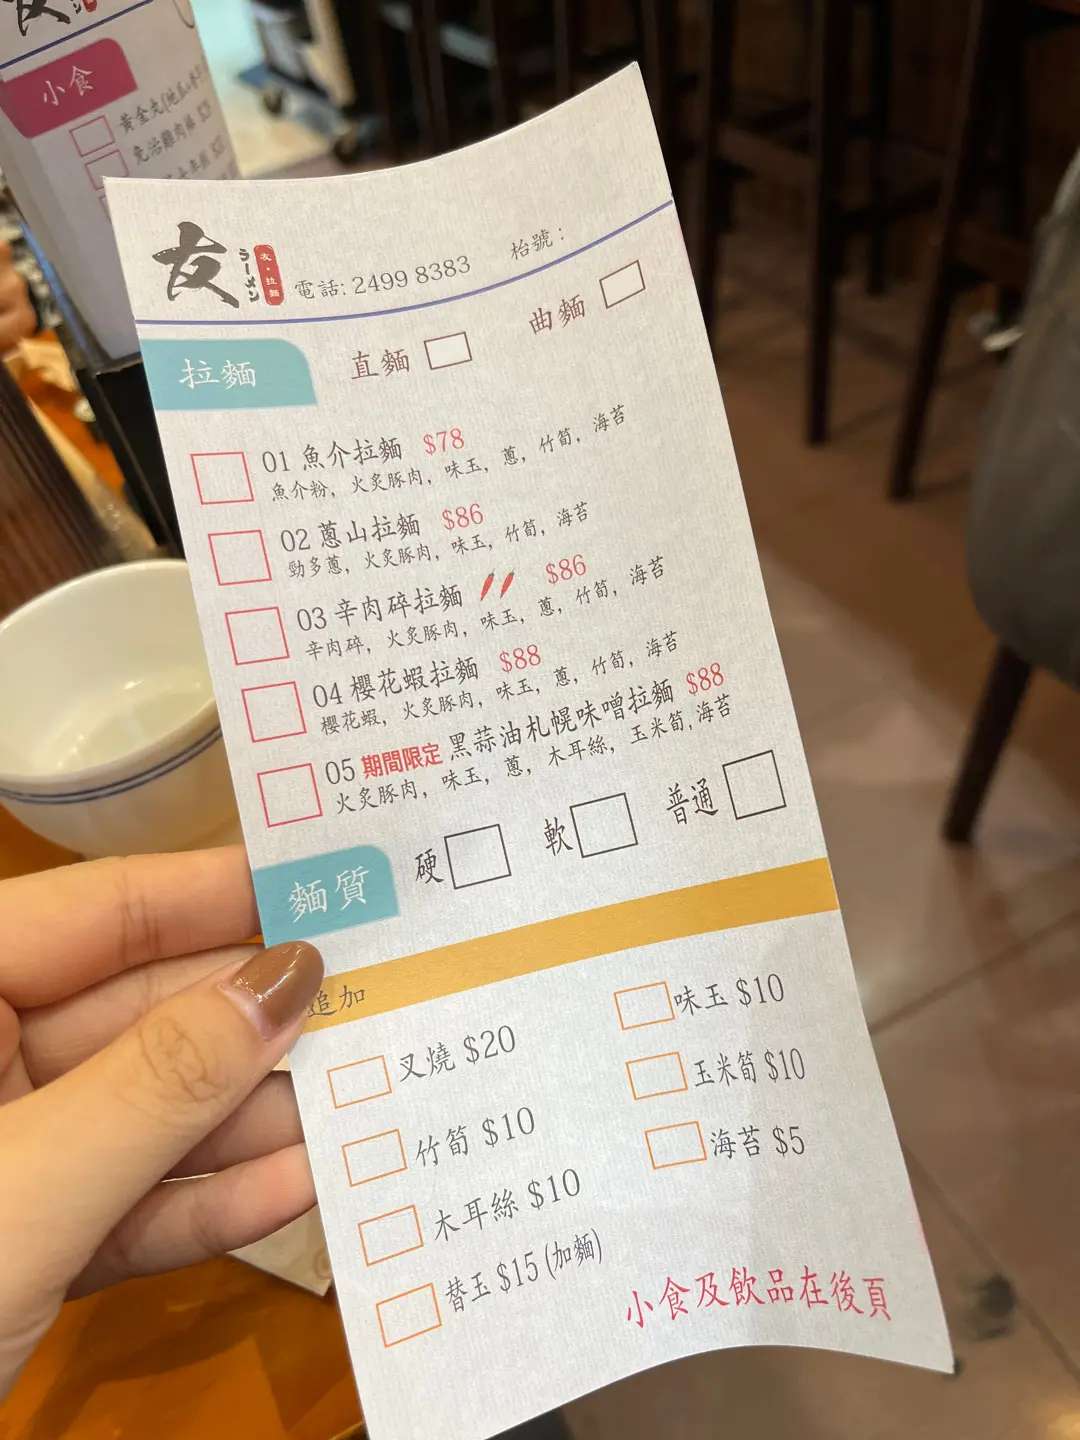 小食
黃金文
友
ラーメン
友・拉麵
電話: 2499 8383
枱號：
拉麵
直麵
曲麵
01 魚介拉麵 $78
魚介粉, 火炙豚肉, 味玉, 蔥, 竹筍, 海苔
02 蔥山拉麵 $86
勁多蔥, 火炙豚肉, 味玉, 竹筍, 海苔
03 辛肉碎拉麵 $86
辛肉碎, 火炙豚肉, 味玉, 蔥, 竹筍, 海苔
04 櫻花蝦拉麵 $88
櫻花蝦, 火炙豚肉, 味玉, 蔥, 竹筍, 海苔
05 期間限定 黑蒜油札幌味噌拉麵 $88
火炙豚肉, 味玉, 蔥, 木耳絲, 玉米筍, 海苔
麵質
硬
軟
普通
追加
叉燒 $20
味玉 $10
竹筍 $10
玉米筍 $10
木耳絲 $10
海苔 $5
替玉 $15 (加麵)
小食及飲品在後頁